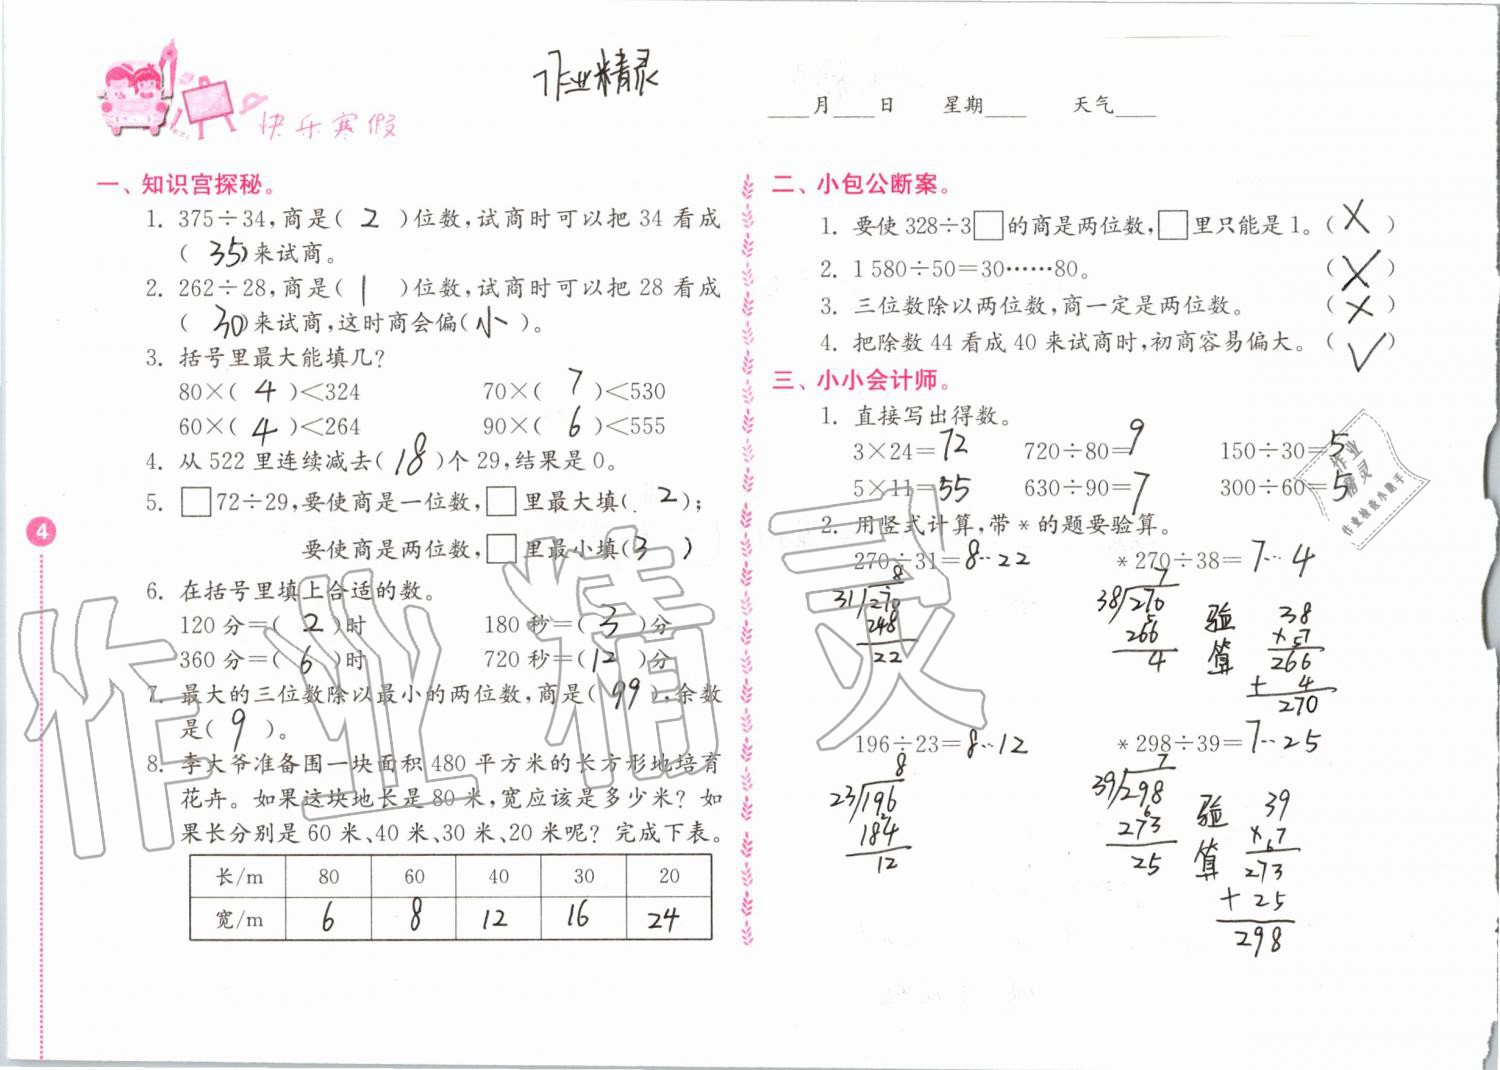 作业精灵
快乐寒假
____月____日 星期____ 天气____
一、知识宫探秘。
1. 375÷34,商是( 2 )位数,试商时可以把 34 看成
( 35 )来试商。
2. 262÷28,商是( 1 )位数,试商时可以把 28 看成
( 30 )来试商,这时商会偏( 小 )。
3. 括号里最大能填几?
80×( 4 )<324 70×( 7 )<530
60×( 4 )<264 90×( 6 )<555
4. 从 522 里连续减去( 18 )个 29,结果是 0。
5. □72÷29,要使商是一位数,□里最大填( 2 );
要使商是两位数,□里最小填( 3 )
6. 在括号里填上合适的数。
120 分=( 2 )时 180 秒=( 3 )分
360 分=( 6 )时 720 秒=( 12 )分
7. 最大的三位数除以最小的两位数,商是( 99 ),余数
是( 9 )。
8. 李大爷准备围一块面积 480 平方米的长方形地培育
花卉。如果这块地长是 80 米,宽应该是多少米? 如
果长分别是 60 米、40 米、30 米、20 米呢? 完成下表。
长/m 80 60 40 30 20
宽/m 6 8 12 16 24
4
二、小包公断案。
1. 要使 328÷3□的商是两位数,□里只能是 1。( × )
2. 1 580÷50=30……80。 ( × )
3. 三位数除以两位数,商一定是两位数。 ( × )
4. 把除数 44 看成 40 来试商时,初商容易偏大。( √ )
三、小小会计师。
1. 直接写出得数。
3×24=72 720÷80=9 150÷30=5
5×11=55 630÷90=7 300÷60=5
2. 用竖式计算,带 * 的题要验算。
270÷31=8…22 *270÷38=7…4
8
31 270
248
22
7
38 270
266
4
验算
38
×7
266
+ 4
270
196÷23=8…12 *298÷39=7…25
8
23 196
184
12
7
39 298
273
25
验算
39
×7
273
+ 25
298
作业精灵
作业精灵
作业检查小助手